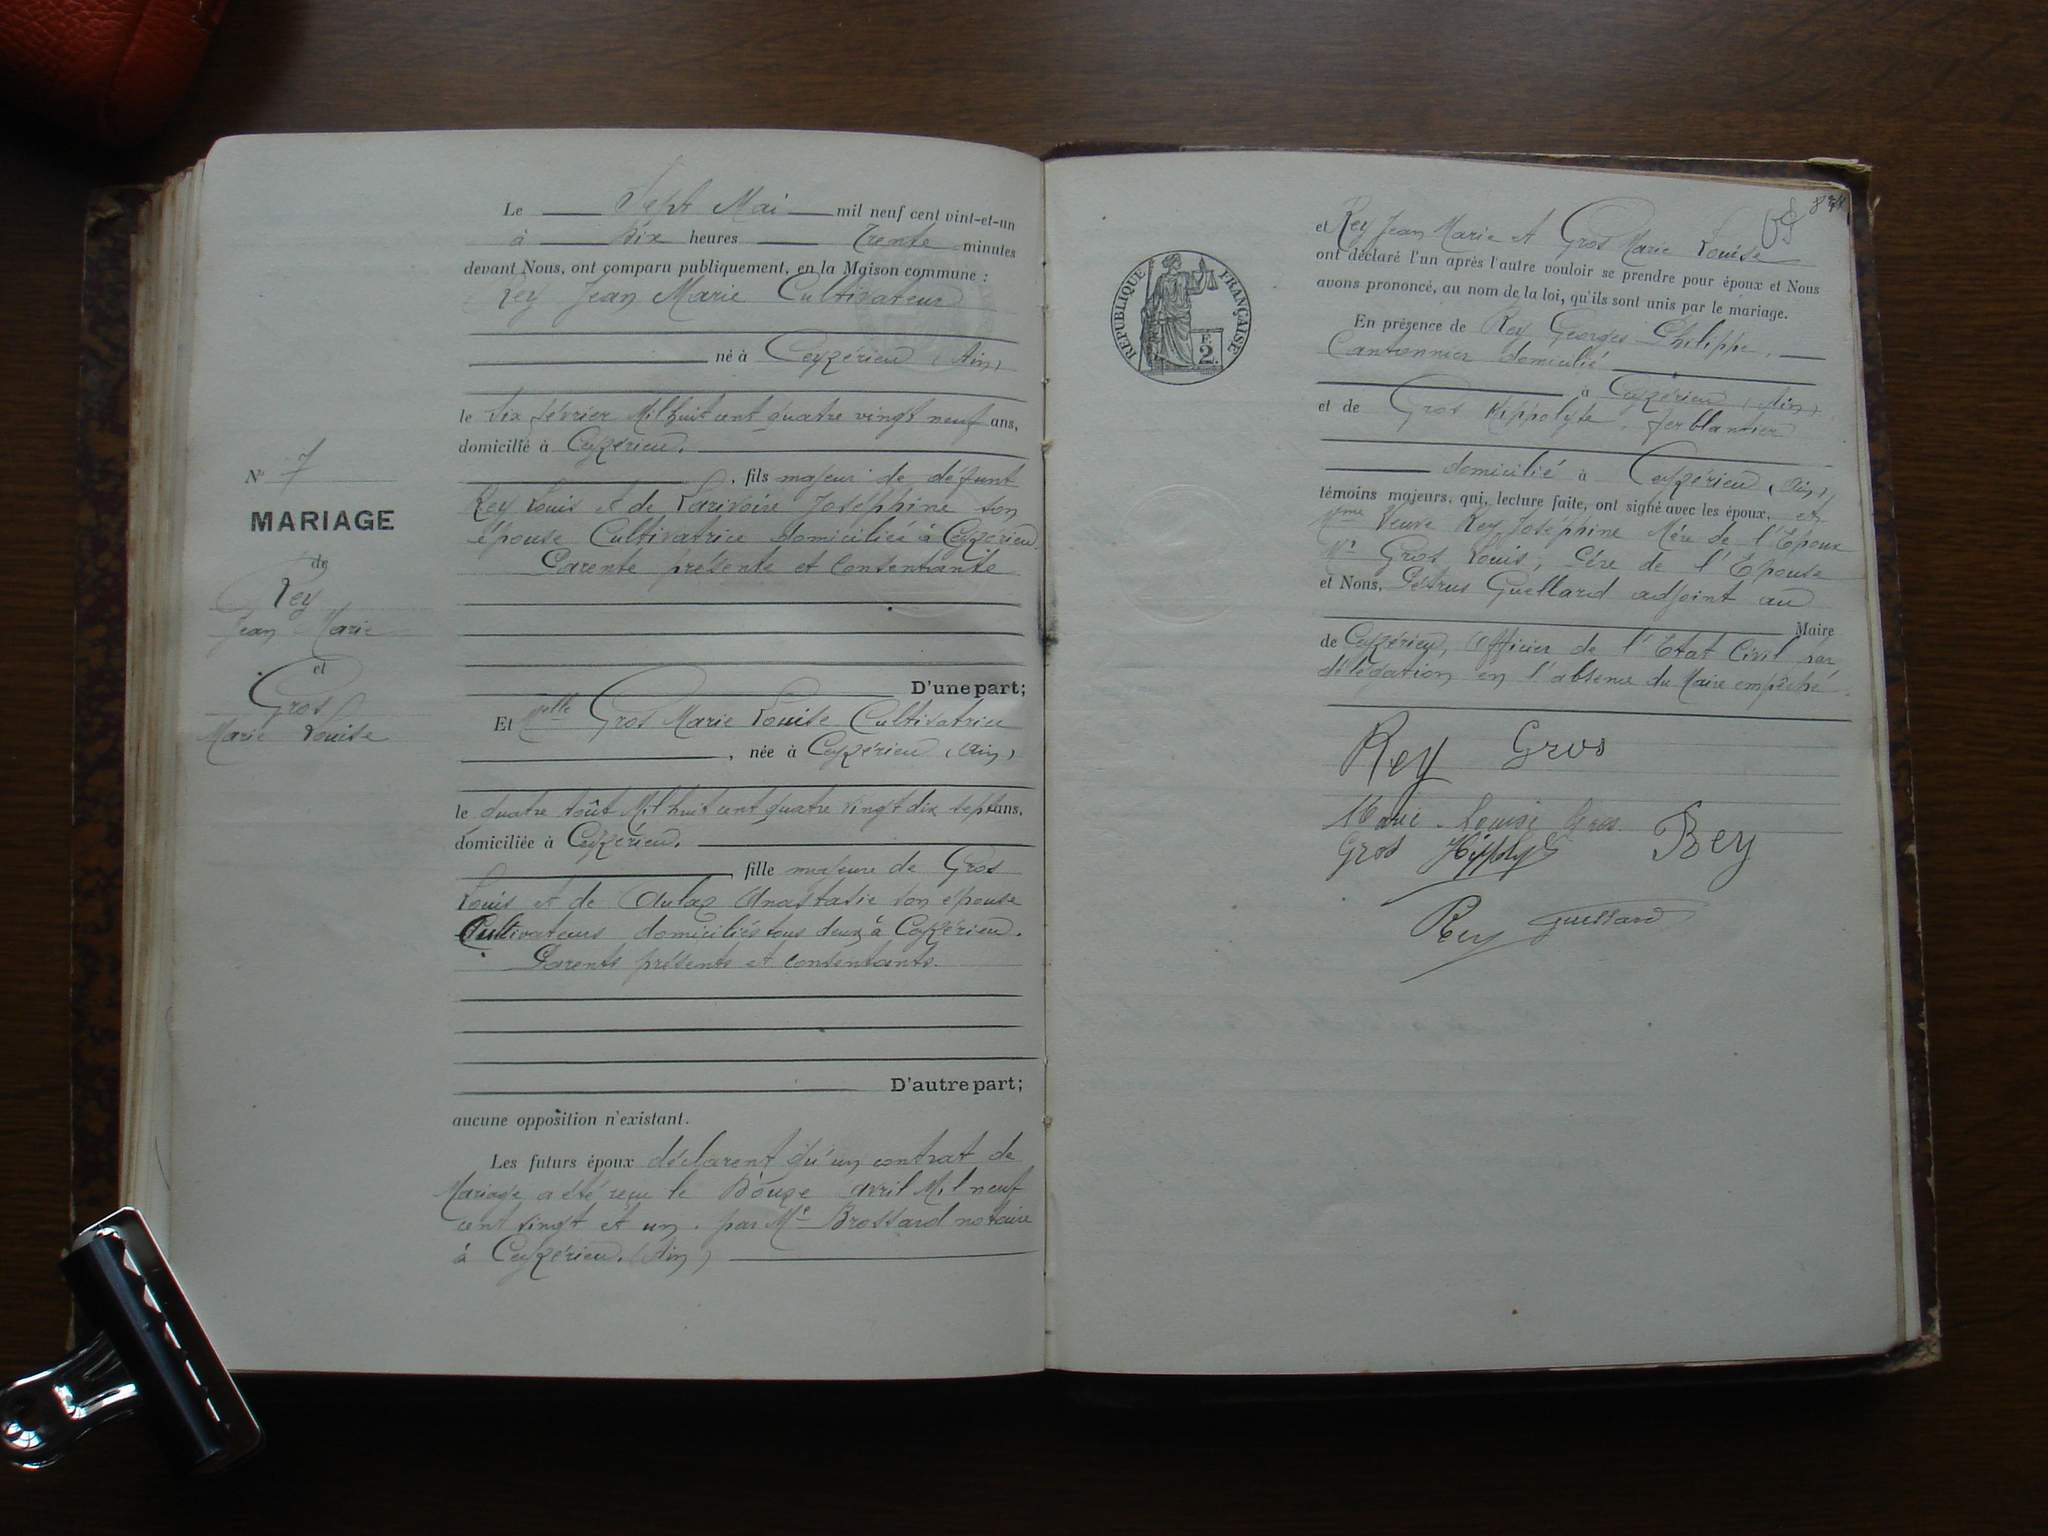 Le Sept Mai mil neuf cent vint-et-un
à Dix heures Trente minutes
devant Nous, ont comparu publiquement, en la Maison commune :
Rey Jean Marie Cultivateur
né à Ceyzérieu (Ain)
le Six février Mil huit cent quatre vingt neuf ans,
domicilié à Ceyzérieu.
, fils majeur de défunt
Rey Louis et de Larivoire Joséphine son
épouse Cultivatrice domiciliée à Ceyzérieu.
Parents présents et consentants
D'une part;
Et Melle Gros Marie Louise Cultivatrice
, née à Ceyzérieu (Ain)
le quatre Août Mil huit cent quatre vingt dix sept ans,
domiciliée à Ceyzérieu.
, fille majeure de Gros
Louis et de Anastasie son épouse
Cultivateurs domiciliés tous deux à Ceyzérieu.
Parents présents et consentants.
D'autre part;
aucune opposition n'existant.
Les futurs époux déclarent qu'un contrat de
Mariage a été reçu le Douze avril Mil neuf
cent vingt et un. par Me Brossard notaire
à Ceyzérieu. (Ain)
N° 7
MARIAGE
de
Rey
Jean Marie
et
Gros
Marie Louise
RÉPUBLIQUE FRANÇAISE
F.
2
et Rey Jean Marie et Gros Marie Louise
ont déclaré l'un après l'autre vouloir se prendre pour époux et Nous
avons prononcé, au nom de la loi, qu'ils sont unis par le mariage.
En présence de Rey Georges Philippe,
Cantonnier domicilié
à Ceyzérieu (Ain)
et de Gros Hippolyte, ferblantier
domicilié à Ceyzérieu (Ain)
témoins majeurs, qui, lecture faite, ont signé avec les époux, et
Mme Veuve Rey Joséphine Mère de l'Epoux
Mr Gros Louis, Père de l'Epouse
et Nous, Petrus Guellard adjoint au
Maire
de Ceyzérieu, Officier de l'Etat Civil par
délégation en l'absence du Maire empêché.
Rey Gros
Marie-Louise Gros
Gros Hippolyte Rey
Rey